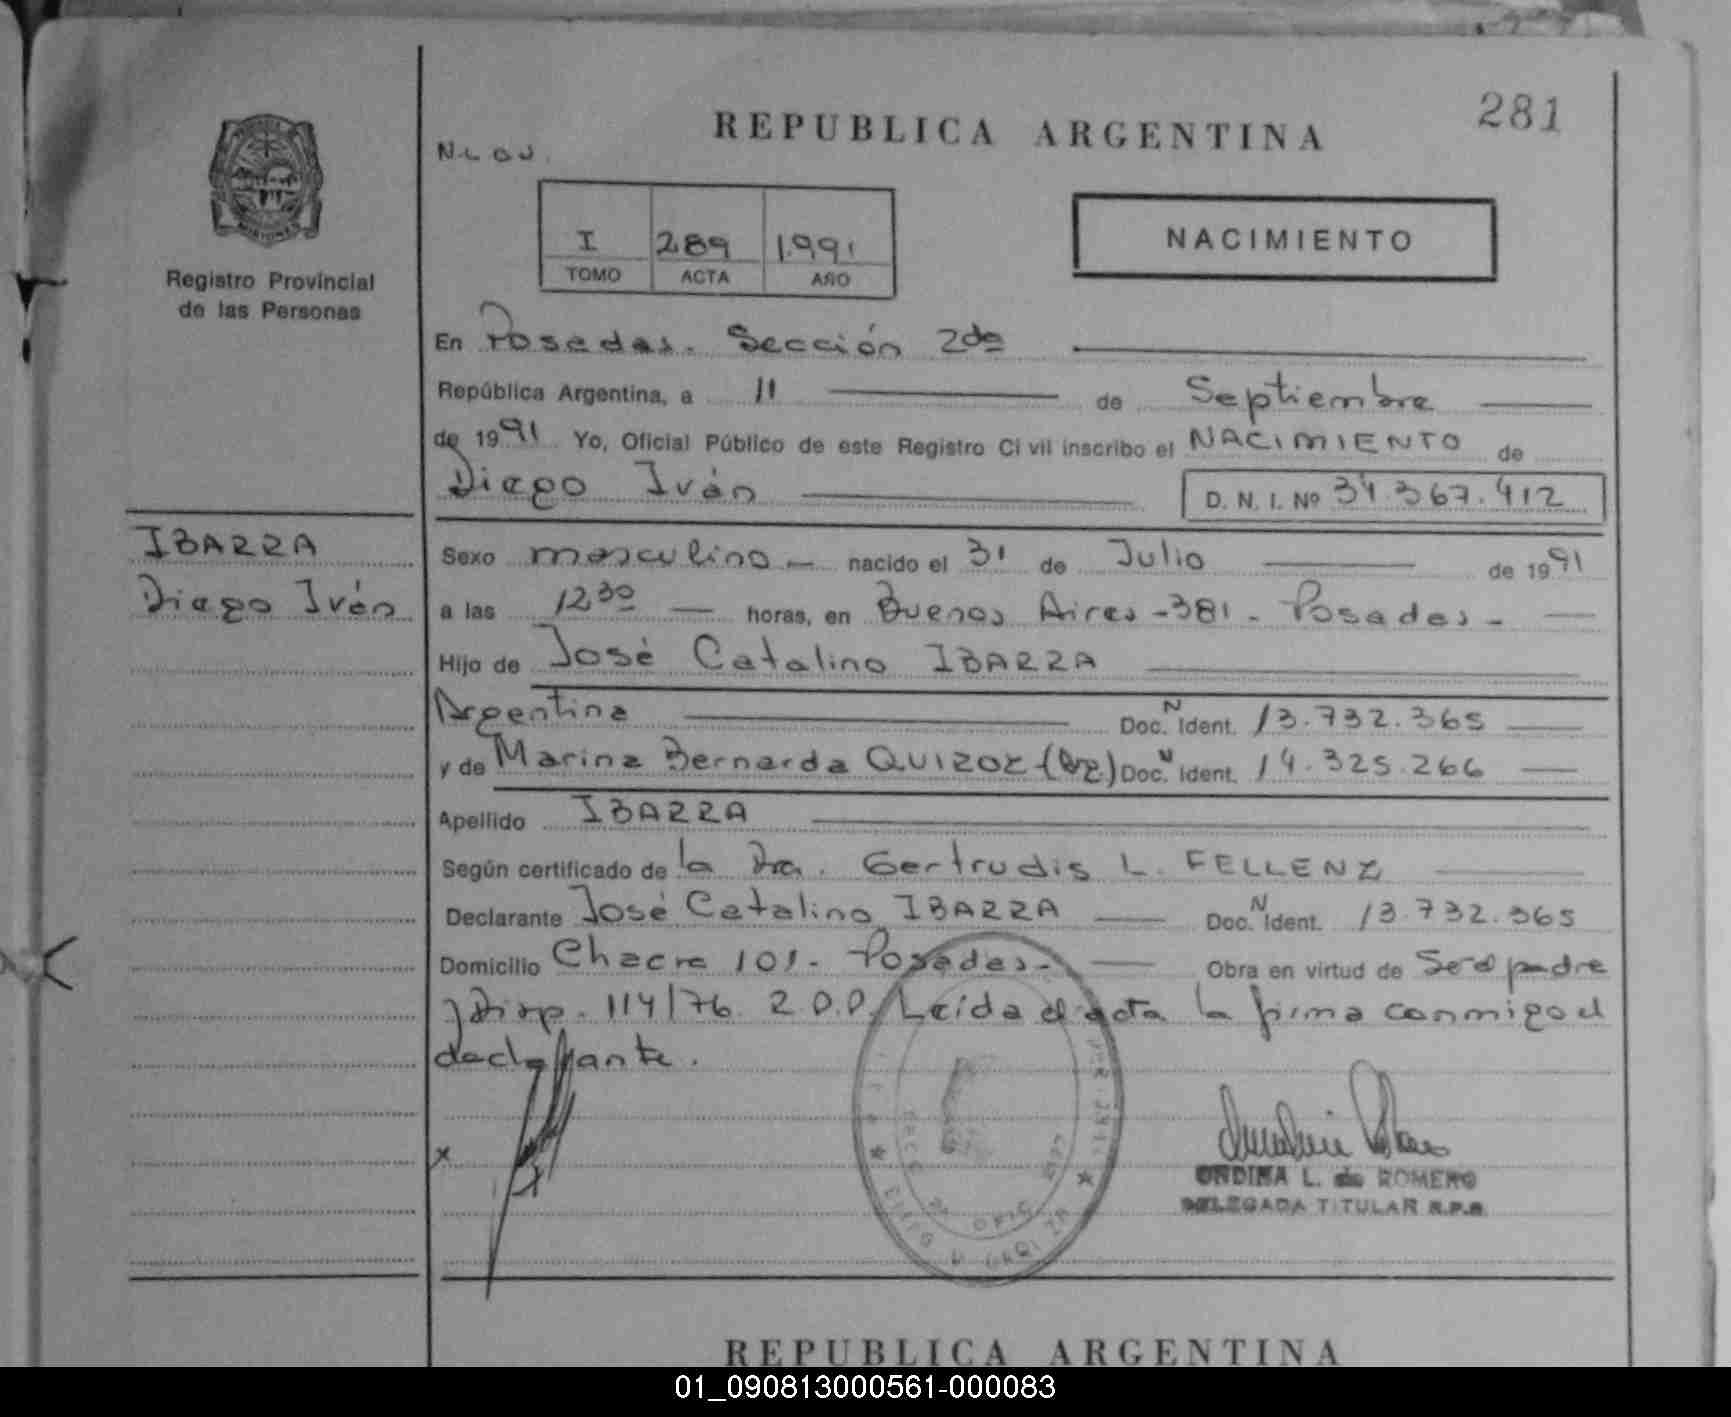 281
REPUBLICA ARGENTINA
I 289 1.991
TOMO ACTA AÑO
NACIMIENTO
MISIONES
Registro Provincial
de las Personas
En Posadas. Sección 2da
República Argentina, a 11 de Septiembre
de 1991 Yo, Oficial Público de este Registro Civil inscribo el NACIMIENTO de
Diego Iván D. N. I. Nº 34.367.412
IBARRA
Diego Iván
Sexo masculino nacido el 31 de Julio de 1991
a las 12 30 horas, en Buenos Aires - 381 - Posadas -
Hijo de José Catalino IBARRA
Argentina Doc. N Ident. 13.732.365
y de Marina Bernarda QUIROZ Doc. N Ident. 14.325.266
Apellido IBARRA
Según certificado de la Dra. Gertrudis L. FELLENZ
Declarante José Catalino IBARRA Doc. N Ident. 13.732.365
Domicilio Chacra 101 - Posadas - Obra en virtud de Ser el padre
y Disp. 114/76. R.P.P. Leída el acta la firma conmigo el
declarante.
x
ONDINA L. de ROMERO
DELEGADA TITULAR R.P.P.
REPUBLICA ARGENTINA
01_090813000561-000083